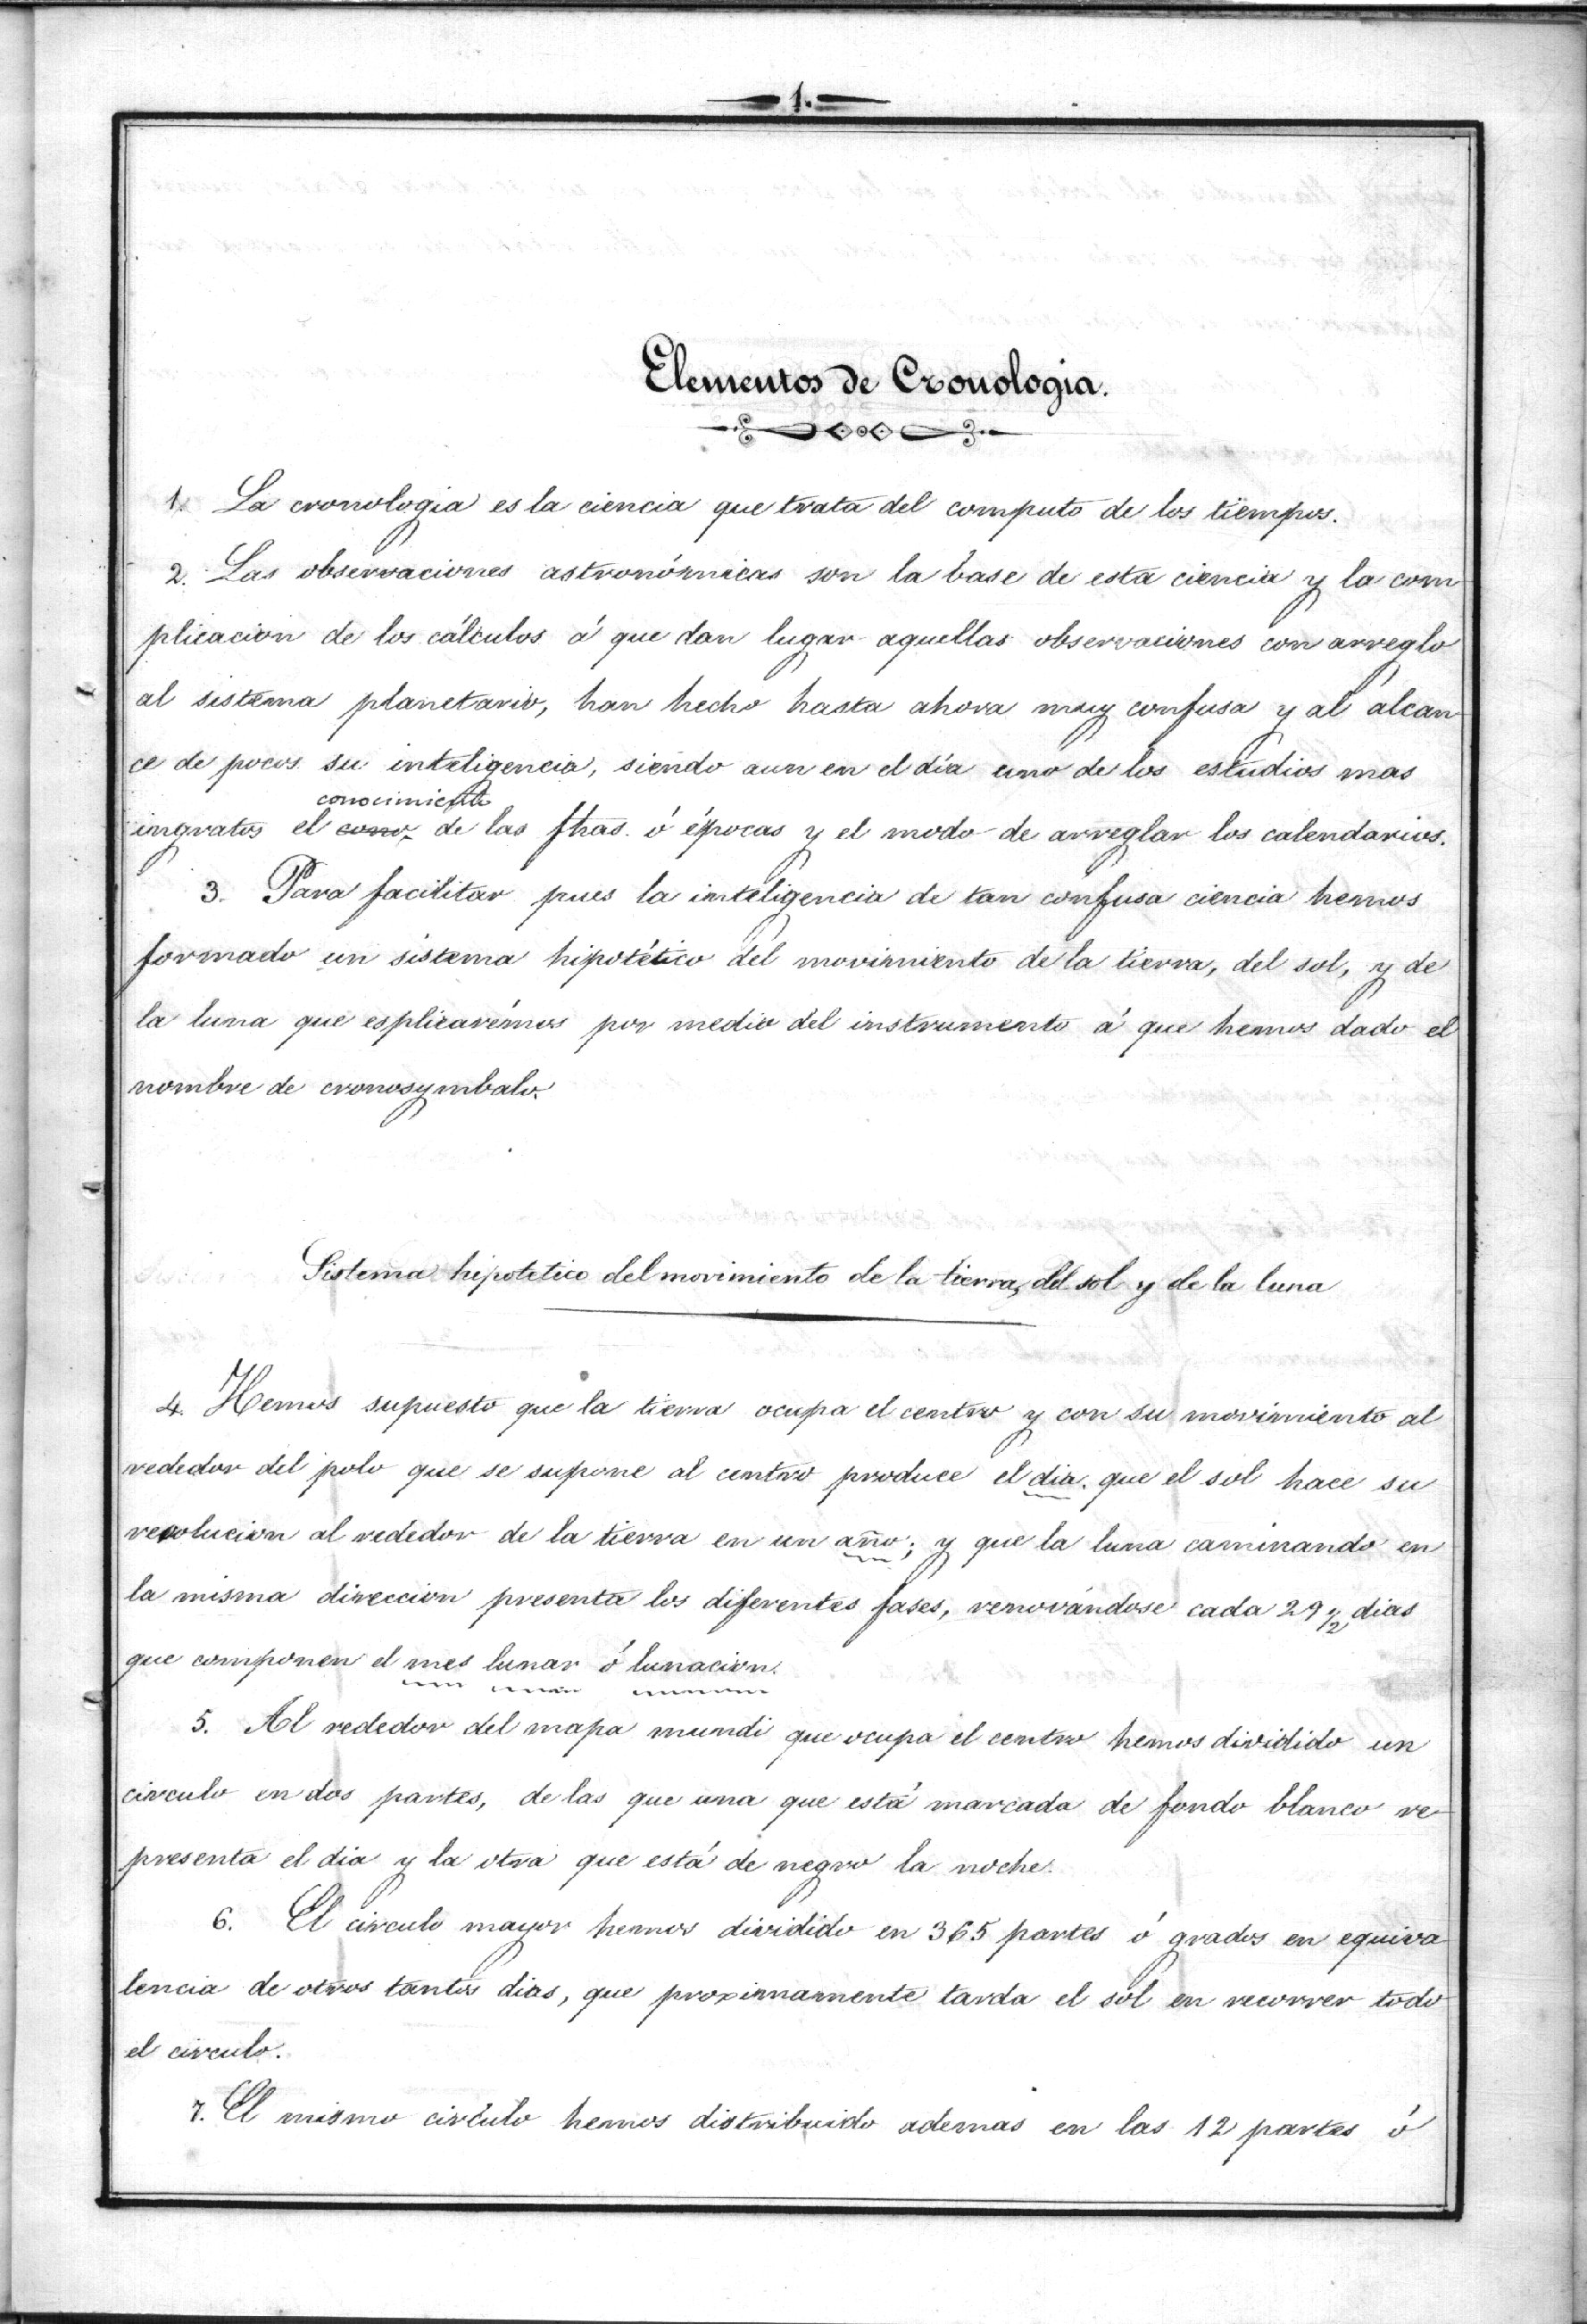 1.
Elementos de Cronologia.
1. La cronologia es la ciencia que trata del computo de los tiempos.
2. Las observaciones astronómicas son la base de esta ciencia y la com
plicacion de los cálculos á que dan lugar aquellas observaciones con arreglo
al sistema planetario, han hecho hasta ahora muy confusa y al alcan-
ce de pocos su inteligencia, siendo aun en el día uno de los estudios mas
conocimiento
ingratos el cono. de las fhas. ó épocas y el modo de arreglar los calendarios.
3. Para facilitar pues la inteligencia de tan confusa ciencia hemos
formado un sistema hipotético del movimiento de la tierra, del sol, y de
la luna que esplicarémos por medio del instrumento á que hemos dado el
nombre de cronosymbalo.
Sistema hipotetico del movimiento de la tierra, del sol y de la luna
4. Hemos supuesto que la tierra ocupa el centro y con su movimiento al
rededor del polo que se supone al centro produce el dia. que el sol hace su
revolucion al rededor de la tierra en un año; y que la luna caminando en
la misma direccion presenta los diferentes fases, renovándose cada 29 1/2 dias
que componen el mes lunar ó lunacion.
5. Al rededor del mapa mundi que ocupa el centro hemos dividido un
circulo en dos partes, de las que una que está marcada de fondo blanco re-
presenta el dia y la otra que está de negro la noche.
6. El circulo mayor hemos dividido en 365 partes ó grados en equiva
lencia de otros tantos dias, que proximamente tarda el sol en recorrer todo
el circulo.
7. El mismo circulo hemos distribuido ademas en las 12 partes ó